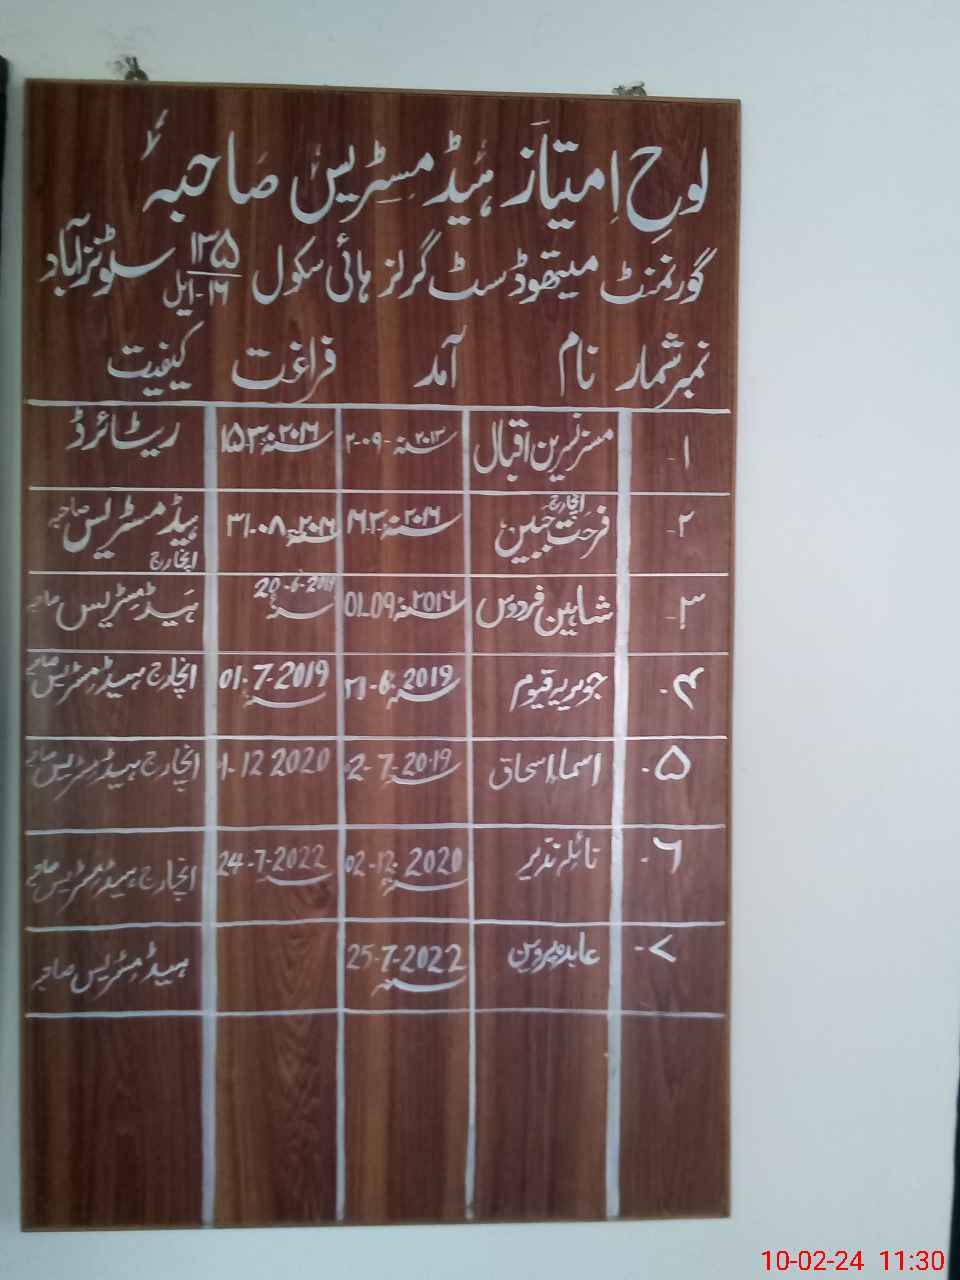 لوحِ اِمتیاز ہیڈ مسٹریس صاحبہ
گورنمنٹ میتھوڈسٹ گرلز ہائی سکول ۱۳۵/۱۶-ایل سٹونز آباد
نمبر شمار نام آمد فراغت کیفیت
۱- مسز نسرین اقبال ۲-۰۹-۲۰۱۳ ۱۵-۳-۲۰۱۶ ریٹائرڈ
۲- انچارج فرحت جبین ۱۶-۳-۲۰۱۶ ۳۱-۰۸-۲۰۱۶ ہیڈ مسٹریس صاحبہ انچارج
۳- شاہین فردوس 01-09-۲۰۱۶ 20-6-2019 ہیڈ مسٹریس صاحبہ
۴- جویریہ قیوم 21-6-2019 01-7-2019 انچارج ہیڈ مسٹریس صاحبہ
۵- اسماء اسحاق 02-7-2019 01-12-2020 انچارج ہیڈ مسٹریس صاحبہ
۶- نائلہ نذیر 02-12-2020 24-7-2022 انچارج ہیڈ مسٹریس صاحبہ
۷- عابدہ پروین 25-7-2022 ہیڈ مسٹریس صاحبہ
10-02-24 11:30